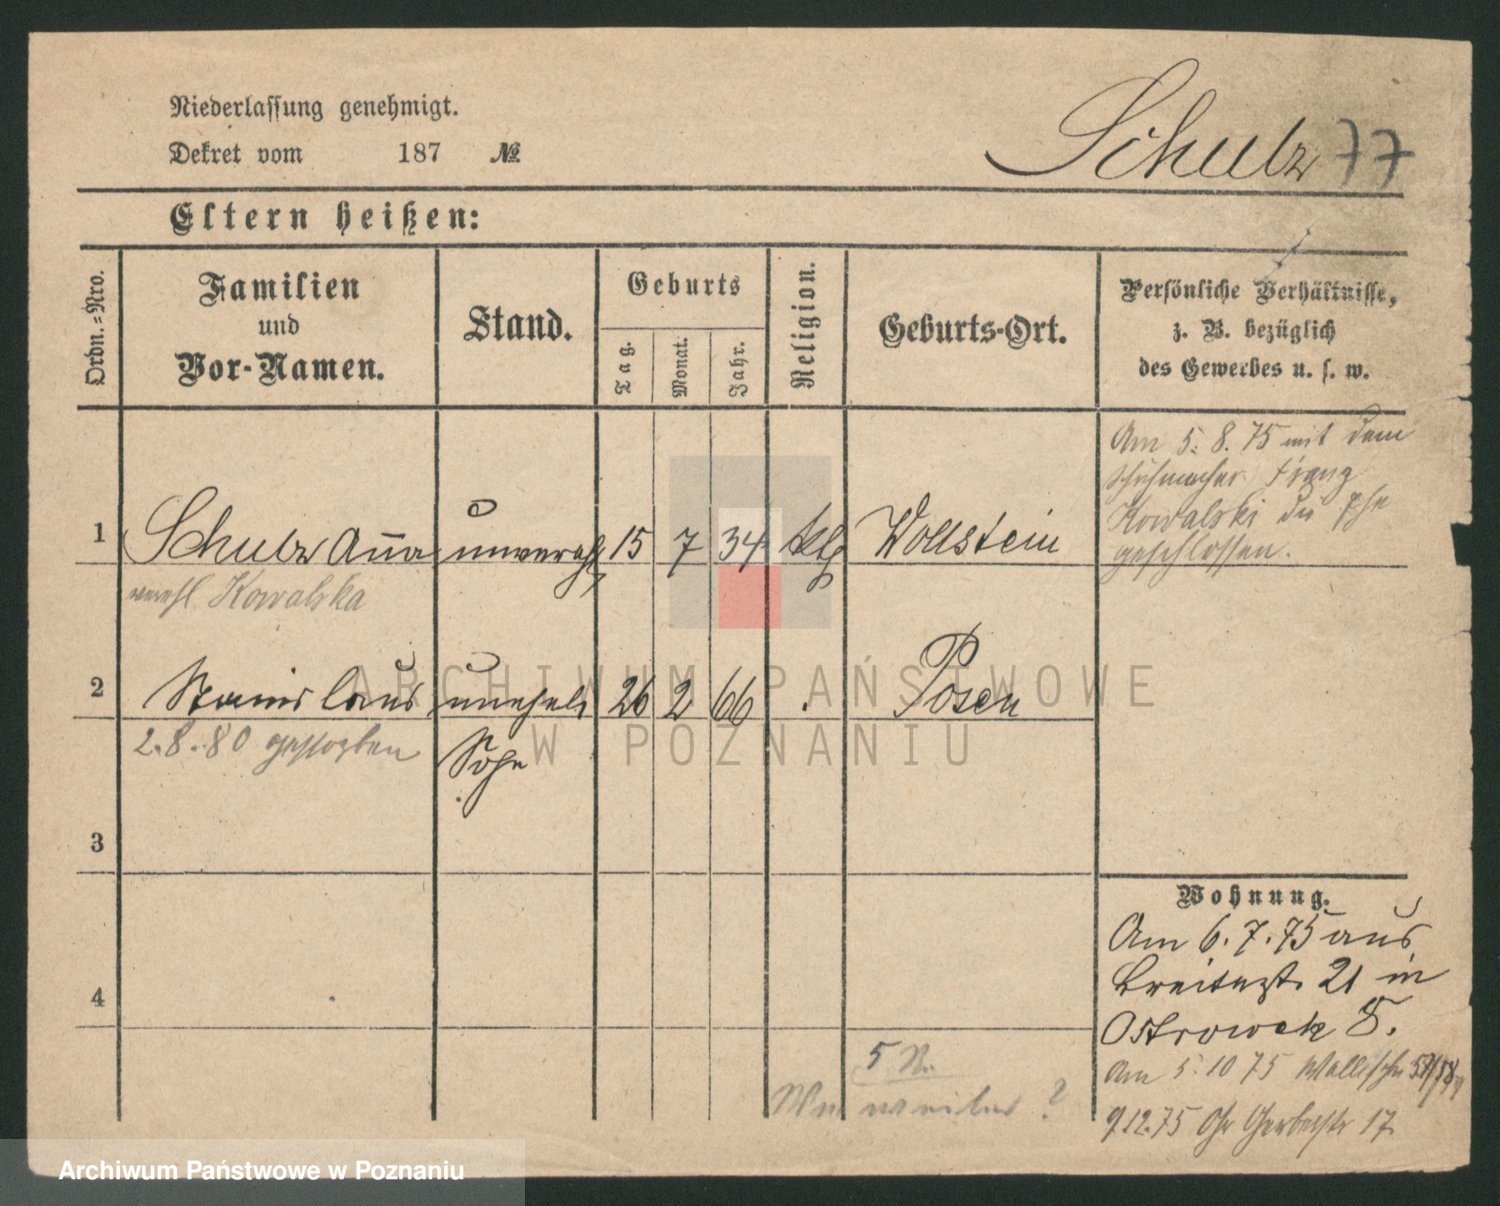 Niederlassung genehmigt.
Dekret vom 187 №
Schulz 77
Eltern heißen:
Ordn.=Nro.
Familien
und
Vor-Namen.
Stand.
Geburts
Tag.
Monat.
Jahr.
Religion.
Geburts-Ort.
Persönliche Verhältnisse,
z. B. bezüglich
des Gewerbes u. s. w.
Am 5. 8. 75 mit dem
Schuhmacher Franz
Kowalski die Ehe
geschlossen.
1 Schulz Anna unverehl 15 7 34 kth Wollstein
verehl. Kowalska
2 Stanislaus unehel 26 2 66 Posen
2.8.80 gestorben
Sohn
3
4
Wohnung.
Am 6. 7. 75 aus
Breitestr. 21 in
Ostrowek 5.
Am 5. 10 75 Wallischei 57/58
9.12.75 Gr Gerberstr 17.
5 N.
?
ARCHIWUM PAŃSTWOWE
W POZNANIU
Archiwum Państwowe w Poznaniu